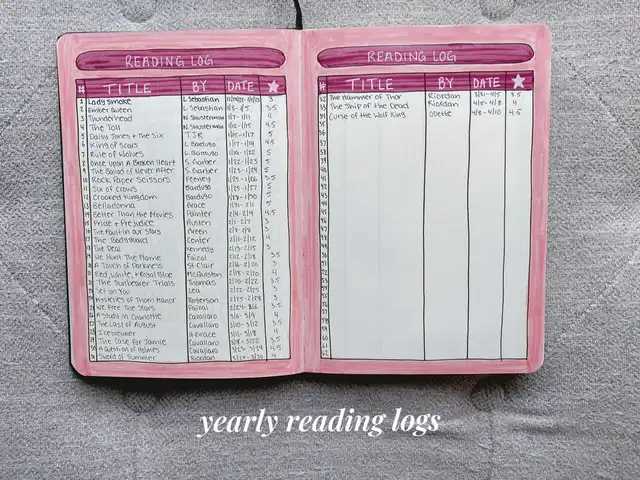 READING LOG
# TITLE BY DATE
1 Lady Smoke L. Sebastian 3
2 Ember Queen L. Sebastian 1/3-1/5 3.5
3 Thunderhead N. Shusterman 1/7-1/11 4
4 The Toll N. Shusterman 4.5
5 Daisy Jones + the Six TJR 1/15-1/17 5
6 King of Scars L. Bardugo 1/17-1/19 4.5
7 Rule of Wolves L. Bardugo 1/19-1/22 5
8 Once Upon A Broken Heart S. Garber 1/22-1/23 5
9 The Ballad of Never After S. Garber 1/23-1/24 5
10 Rock Paper Scissors Feeney 1/25-1/26 3.5
11 Six of Crows Bardugo 1/25-1/27 5
12 Crooked Kingdom Bardugo 1/28-1/30 5
13 Belladonna Grace 5
14 Better Than the Movies Painter 2/4-2/4 4.5
15 Pride + Prejudice Austen 2/1-2/7 3
16 the Fault in Our Stars Green 3
17 The Godsgrave Center 2/11-2/12 4
18 The Deal Kennedy 2/13-2/15 3
19 We Hunt the Flame Faizal 3.5
20 A Touch of Darkness St. Clair 3
21 Red, White, + Royal Blue McQuiston 4
22 The Sunbearer Trials Thomas 3.5
23 Set on You Lea 2/22-2/25 3
24 Mysteries of Thorn Manor Rogerson 3
25 We Free The Stars Faizal 3.5
26 A Study in Charlotte Cavallaro 3/6-3/9 4
27 The Last of August Cavallaro 3/10-3/12 3.5
28 Icebreaker H. Grace 3/11-3/18 4
29 The Case for Jamie Cavallaro 3.5
30 A Question of Holmes Cavallaro 4.5
31 Sword of Summer Riordan 4
READING LOG
# TITLE BY DATE
32 The Hammer of Thor Riordan 3/31-4/5 3.5
33 The Ship of the Dead Riordan 4/5-4/8 4
34 Curse of the Wolf King Odette 4/8-4/10 4.5
35
36
37
38
39
40
41
42
43
44
45
46
47
48
49
50
51
52
53
54
55
56
57
58
59
60
61
62
yearly reading logs